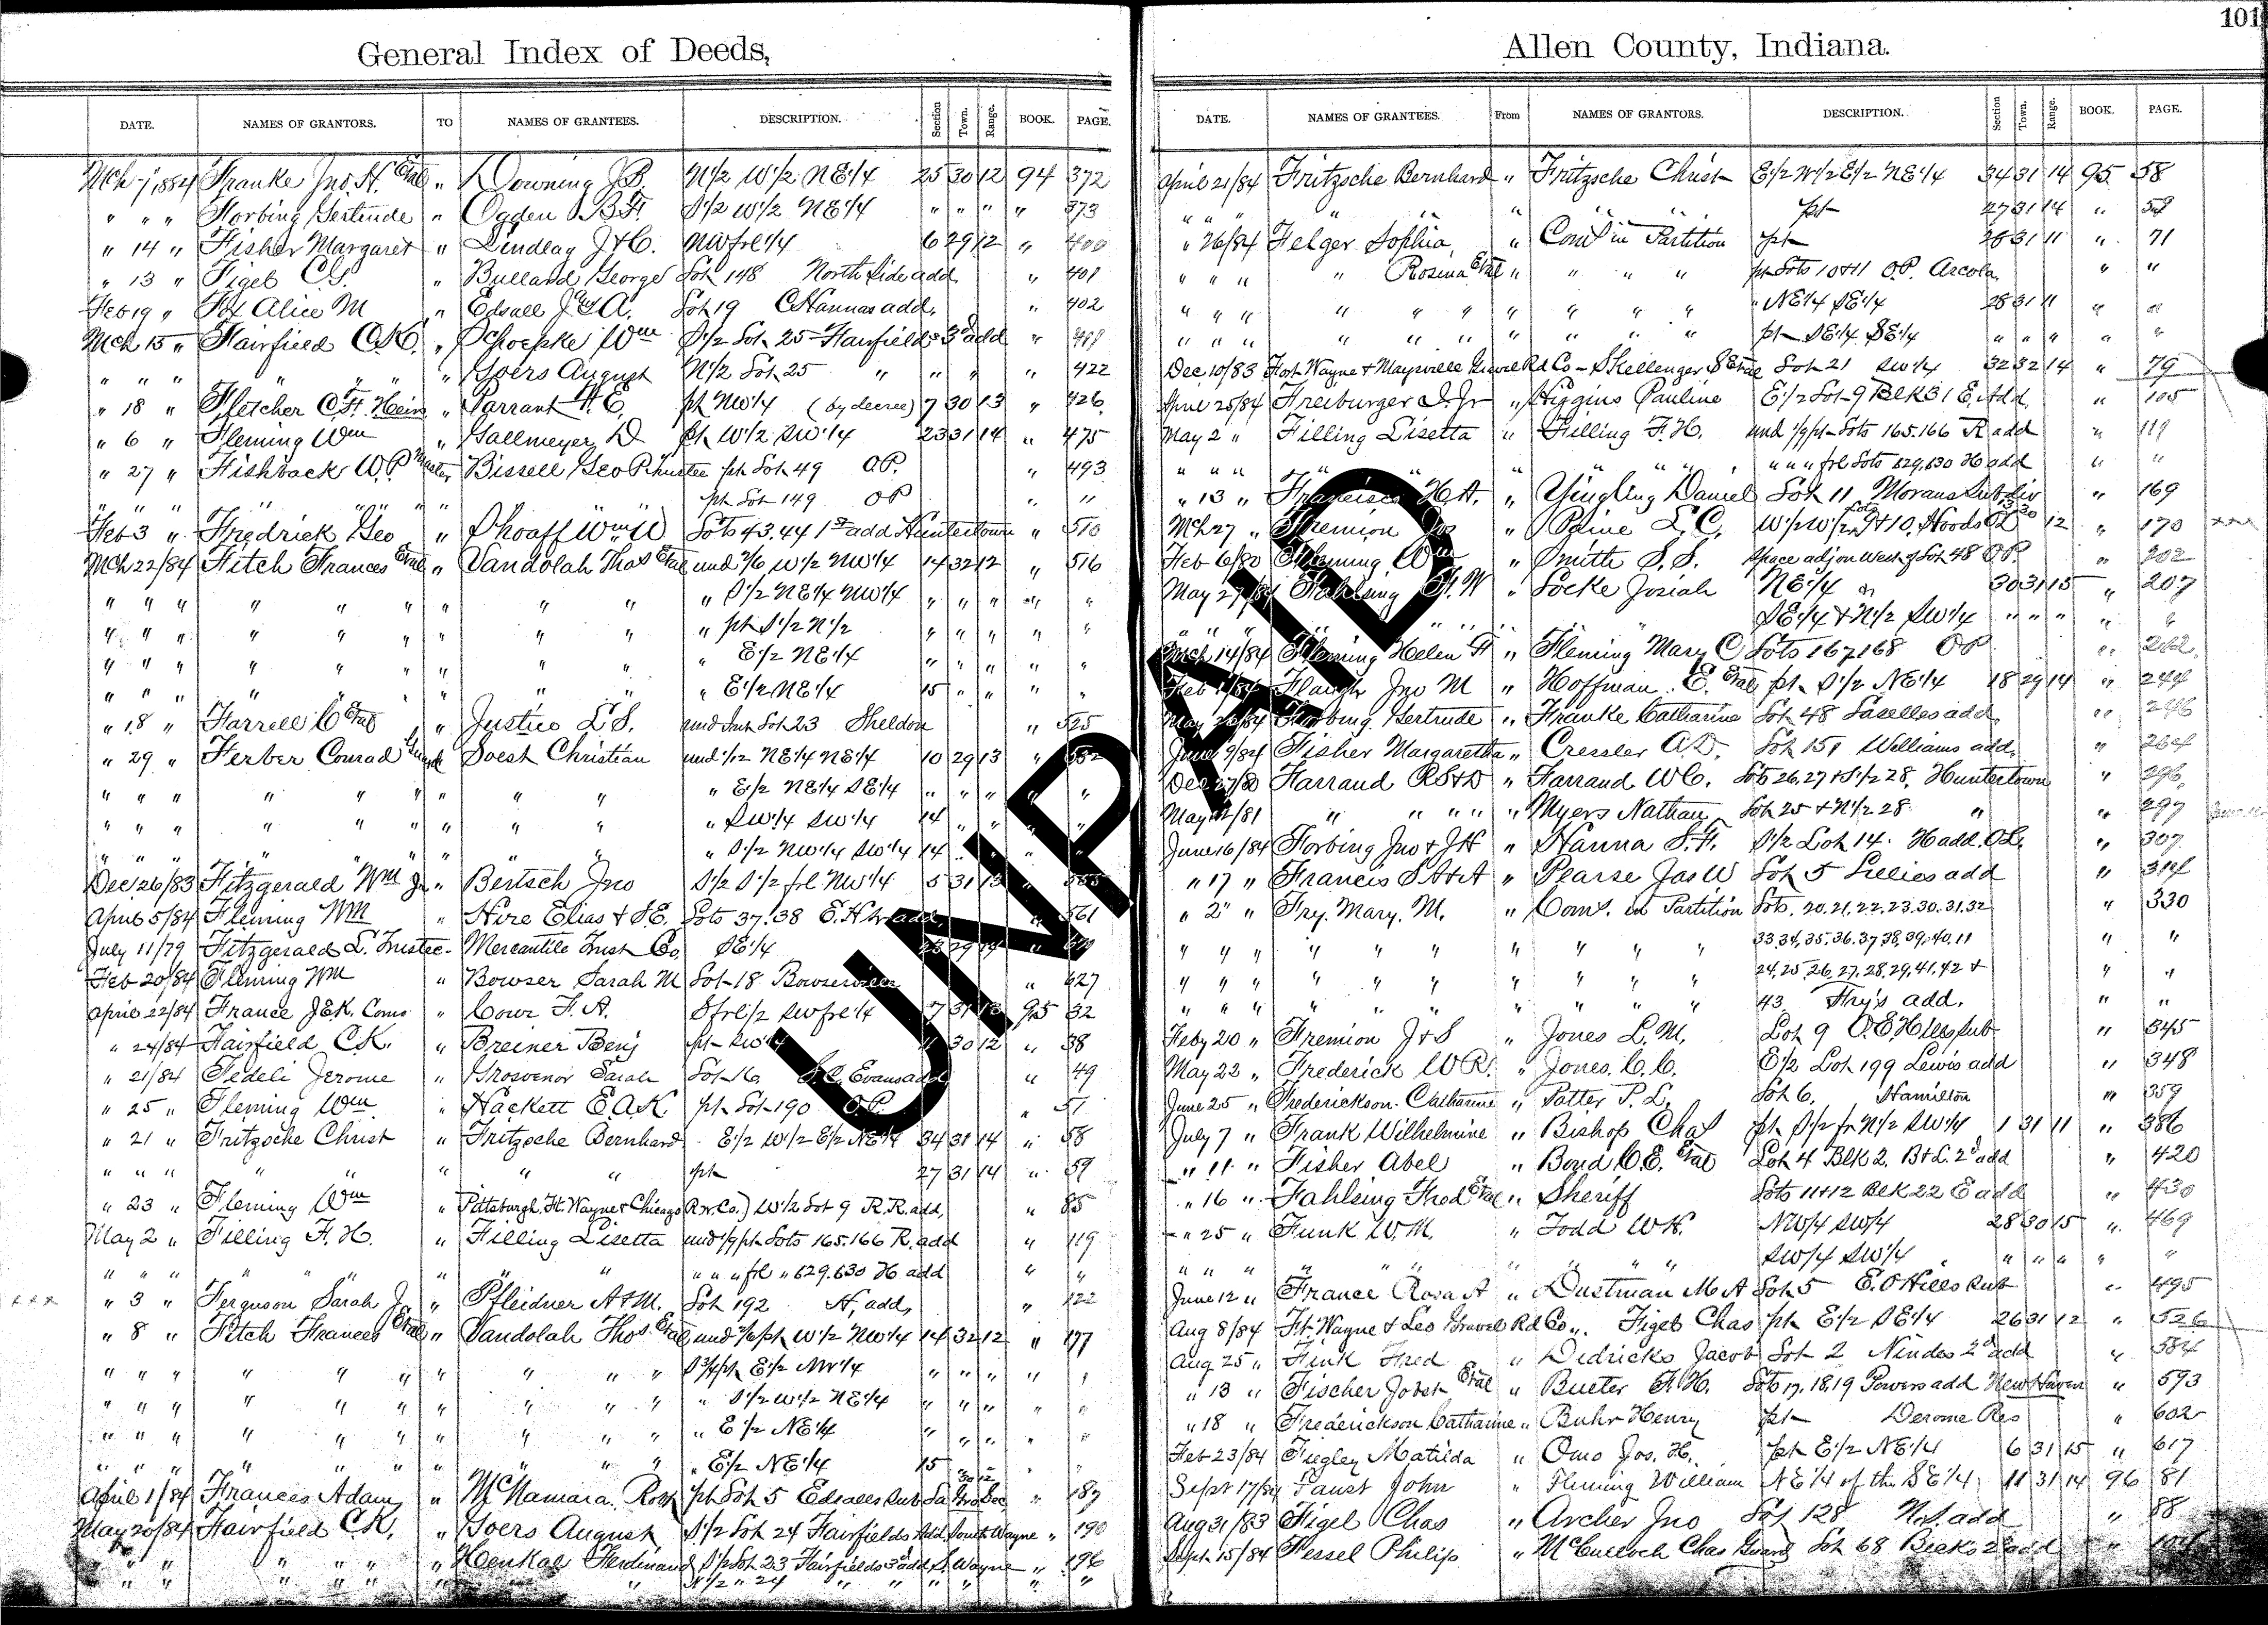 101
General Index of Deeds,
DATE. NAMES OF GRANTORS. TO NAMES OF GRANTEES. DESCRIPTION. Section Town. Range. BOOK. PAGE.
Mch 7, 1884 Franke Jno. H. Etal " Downing J.B. N1/2 W1/2 NE1/4 25 30 12 94 372
" " " Forbing Gertrude " Ogden B.F. S1/2 W1/2 NE1/4 " " " " 373
" 14 " Fisher Margaret " Lindlag J+C. NW frl 1/4 6 29 12 " 400
" 13 " Figel C.G. " Bullard George Lot 148 North Side add " 401
Feb 19 " Fox Alice M " Edsall J+A. Lot 19 C Hannas add. " 402
Mch 15 " Fairfield C.K. " Schoepke Wm S1/2 Lot 25 Fairfields 3d add "
" " " " " " Goers August N1/2 Lot 25 " " " " 422
" 18 " Fletcher C.F. Heirs " Tarrant H.E. pt NW1/4 (by decree) 7 30 13 " 426
" 6 " Fleming Wm " Gallmeyer D pt W1/2 SW1/4 23 31 14 " 475
" 27 " Fishback W.P. Master Bissell Geo P Trustee pt Lot 49 O.P. " 493
" " " " " " pt Lot 149 OP " "
Feb 3 " Fredrick Geo " Shoaff Wm W Lots 43.44 1st add Huntertown " 510
Mch 22/84 Fitch Frances Etal " Vandolah Thos Etal und 2/6 W1/2 NW1/4 14 32 12 " 516
" " " " " " " " " " S1/2 NE1/4 NW1/4 " " " " "
" " " " " " " " " " pt S1/2 N1/2 " " " " "
" " " " " " " " " " E1/2 NE1/4 " " " " "
" " " " " " " " " E1/2 NE1/4 15 " " " "
" 18 " Farrell C Etal " Justice L.S. und Int Lot 23 Sheldon " 525
" 29 " Ferber Conrad Guard Soest Christian und 1/12 NE1/4 NE1/4 10 29 13 " 532
" " " " " " " " " " E1/2 NE1/4 SE1/4 " " " " "
" " " " " " " " " " SW1/4 SW1/4 14 " " " "
" " " " " " " " " S1/2 NW1/4 SW1/4 14 " " " "
Dec 26/83 Fitzgerald Wm Jr " Bertsch Jno S1/2 S1/2 frl NW1/4 5 31 13 " 555
April 5/84 Fleming Wm " Hire Elias + S.E. Lots 37.38 E.H. add " 561
July 11/79 Fitzgerald L. Trustee - Mercantile Trust Co. SE1/4 23 29 14 "
Feb 20/84 Fleming Wm " Bowser Sarah M Lot 18 Bowserville " 627
April 22/84 France J.E.K. Coms " Cour F.A. S frl 1/2 SW frl 1/4 7 31 13 95 32
" 24/84 Fairfield C.K. " Breiner Benj pt SW1/4 30 12 " 38
" 21/84 Fedeli Jerome " Grosvenor Sarah Lot 16 S.C. Evans add " 49
" 25 " Fleming Wm " Hackett E.A.K pt Lot 190 O.P. " 51
" 21 " Fritzsche Christ " Fritzsche Bernhard E1/2 W1/2 E1/2 NE1/4 34 31 14 " 58
" " " " " " " " pt 27 31 14 " 59
" 23 " Fleming Wm " Pittsburgh, Ft. Wayne + Chicago R.R. Co.) W1/2 Lot 9 R.R. add, " 85
May 2 " Filling F.H. " Filling Lisetta und 1/9 pt Lots 165.166 R. add " 119
" " " " " " " " " " " frl " 629.630 H add " "
" 3 " Ferguson Sarah J. " Pfleidner A+M. Lot 192 H, add, " 122
" 8 " Fitch Frances Etal " Vandolah Thos. Etal und 2/6 pt W1/2 NW1/4 14 32 12 " 177
" " " " " " " " " " S 3/4 pt E1/2 NW1/4 " " " " "
" " " " " " " " " " S1/2 W1/2 NE1/4 " " " " "
" " " " " " " " " " E1/2 NE1/4 " " " " "
" " " " " " " " " " E1/2 NE1/4 15 " " " "
April 1/84 Frances Adam " McNamara Robt pt Lot 5 Edsalls Sub 30 12 " 187
May 20/84 Fairfield C.K. " Goers August S1/2 Lot 24 Fairfields Add. South Wayne " 190
" " " " " " Henkal Ferdinand S1/2 Lot 23 Fairfields 3d add S. Wayne " 196
" " " " " " " " N1/2 " 24 " " " " " "
Allen County, Indiana.
DATE. NAMES OF GRANTEES. From NAMES OF GRANTORS. DESCRIPTION. Section Town. Range. BOOK. PAGE.
April 21/84 Fritzsche Bernhard " Fritzsche Christ E1/2 W1/2 E1/2 NE1/4 34 31 14 95 58
" " " " " " " " pt 27 31 14 " 59
" 26/84 Felger Sophia " Com's in Partition pt 28 31 11 " 71
" " " " Rosina Etal " " " " pt Lots 10+11 O.P. Arcola " "
" " " " " " " " " " " NE1/4 SE1/4 28 31 11 " "
" " " " " " " " " " pt SE1/4 SE1/4 " " " " "
Dec. 10/83 Fort Wayne + Maysville Gravel Rd Co - Shellenger S Etal Lot 21 SW1/4 32 32 14 " 79
April 25/84 Freiburger J. Jr " Higgins Pauline E1/2 Lot 9 Blk 31 E. Add. " 105
May 2 " Filling Lisetta " Filling F.H. und 1/9 pt Lots 165.166 R add " 119
" " " " " " " " " " " frl Lots 629,630 H add " "
" 13 " Francisco H.A. " Yingling Daniel Lot 11 Morans Subdiv " 169
Mch 27 " Fremion Jos " Paine L.C. W1/2 W1/2 Lots 9+10, Hoods 12 " 170
Feb 6/80 Fleming Wm " Smith S.S. Space adj on West of Lot 48 O.P. " 202
May 27/84 Fahlsing F.W " Locke Josiah NE1/4 30 31 15 " 207
" " " " " SE1/4 + N1/2 SW1/4 " " " " "
Mch 14/84 Fleming Helen F " Fleming Mary C Lots 167 168 OP "
Feb 1/84 Flaugh Jno M " Hoffman E. Etal pt S1/2 NE1/4 18 29 14 " 244
May 26/84 Forbing Gertrude " Franke Catharine Lot 48 Laselles add. "
June 9/84 Fisher Margaretha " Cressler A.D. Lot 151 Williams add. "
Dec 27/80 Farrand R.S+D " Farrand W.C. Lots 26,27 + S1/2 28, Huntertown " 296
May 12/81 " " " " " Myers Nathan Lot 25 + N1/2 28 " " 297
June 16/84 Forbing Jno + J.H " Hanna S.F. S1/2 Lot 14. H add. O.L. " 307
" 17 " Francis S.A+A " Pearse Jas W Lot 5 Lillies add " 314
" 2 " Fry. Mary. M. " Com's. in Partition Lots. 20.21.22.23.30.31.32 " 330
" " " " " " " " " " 33.34,35.36.37 38,39,40,11 " "
" " " " " " " " " " 24,25,26,27,28,29,41,42 + " "
" " " " " " " " " " 43 Fry's add. " "
Feby 20 " Fremion J+S " Jones L.M. Lot 9 O.E. Hills sub " 345
May 22 " Frederick W.R. " Jones C.C. E1/2 Lot 199 Lewis add " 348
June 25 " Frederickson Catharine " Patter P.L. Lot 6, Hamilton " 359
July 7 " Frank Wilhelmine " Bishop Chas pt S1/2 fr N1/2 SW1/4 1 31 11 " 386
" 11 " Fisher Abel " Bond C.E. Etal Lot 4 Blk 2. B+L. 2d add " 420
" 16 " Fahlsing Fred Etal " Sheriff Lots 11+12 Blk 22 E add " 430
" 25 " Funk W.M. " Todd W.H. NW/4 SW/4 28 30 15 " 469
" " " " " " " " SW/4 SW1/4 " " " " "
June 12 " France Rosa A " Dustman M A Lot 5 E. O Hills Sub " 495
Aug 8/84 Ft. Wayne + Leo Gravel Rd Co " Figel Chas pt E1/2 SE1/4 26 31 12 " 526
Aug 25 " Fink Fred " Didricks Jacob Lot 2 Nindes 2d add " 584
" 13 " Fischer Jobst Etal " Bueter F.H. Lots 17,18,19 Powers add New Haven " 593
" 18 " Frederickson Catharine " Buhr Henry pt Derome Res " 602
Feb 23/84 Fiegley Matilda " Omo Jos. H. pt E1/2 NE1/4 6 31 15 " 617
Sept 17/84 Faust John " Fleming William NE1/4 of the SE1/4 11 31 14 96 81
Aug 31/83 Figel Chas " Archer Jno Lot 128 N.S. add " 88
Sept 15/84 Fessel Philip " McCulloch Chas Guard Lot 68 Becks 2d add "
UNPAID